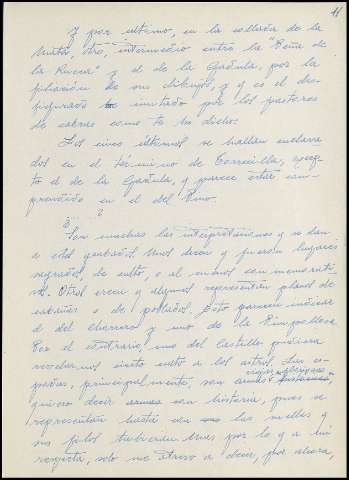 11
Y por último, en la collada de la
, otro, intermedio entre la "Peña de
la Rueca" y el de la Gañula, por la
filiación de sus dibujos, y y es el des-
figurado imitado por los pastores
de cabras como te he dicho.
Los cinco últimos se hallan enclava
dos en el término de Torrecilla, excep-
to el de la Gañula, y parece estar com-
prendido en el del Pino.
¿... ?
Son muchas las interpretaciones y se dan
a estos grabados. Unos dicen y fueron lugares
sagrados, de culto, o al menos conmemorati-
vos. Otros creen y algunos representan planos de
cabañas o de poblados. Esto parecen indicar
el del charcero y uno de la Rimpollosa.
Por el contrario uno del Castillo pudiera
revelarnos cierto culto a los astros. Las es-
padas, principalmente, son
quiero decir con historia, pues se
representan hasta con sus mellas y
sus filos tuvieran unas por lo y a mi
respecta, solo me atrevo a decir, por ahora,